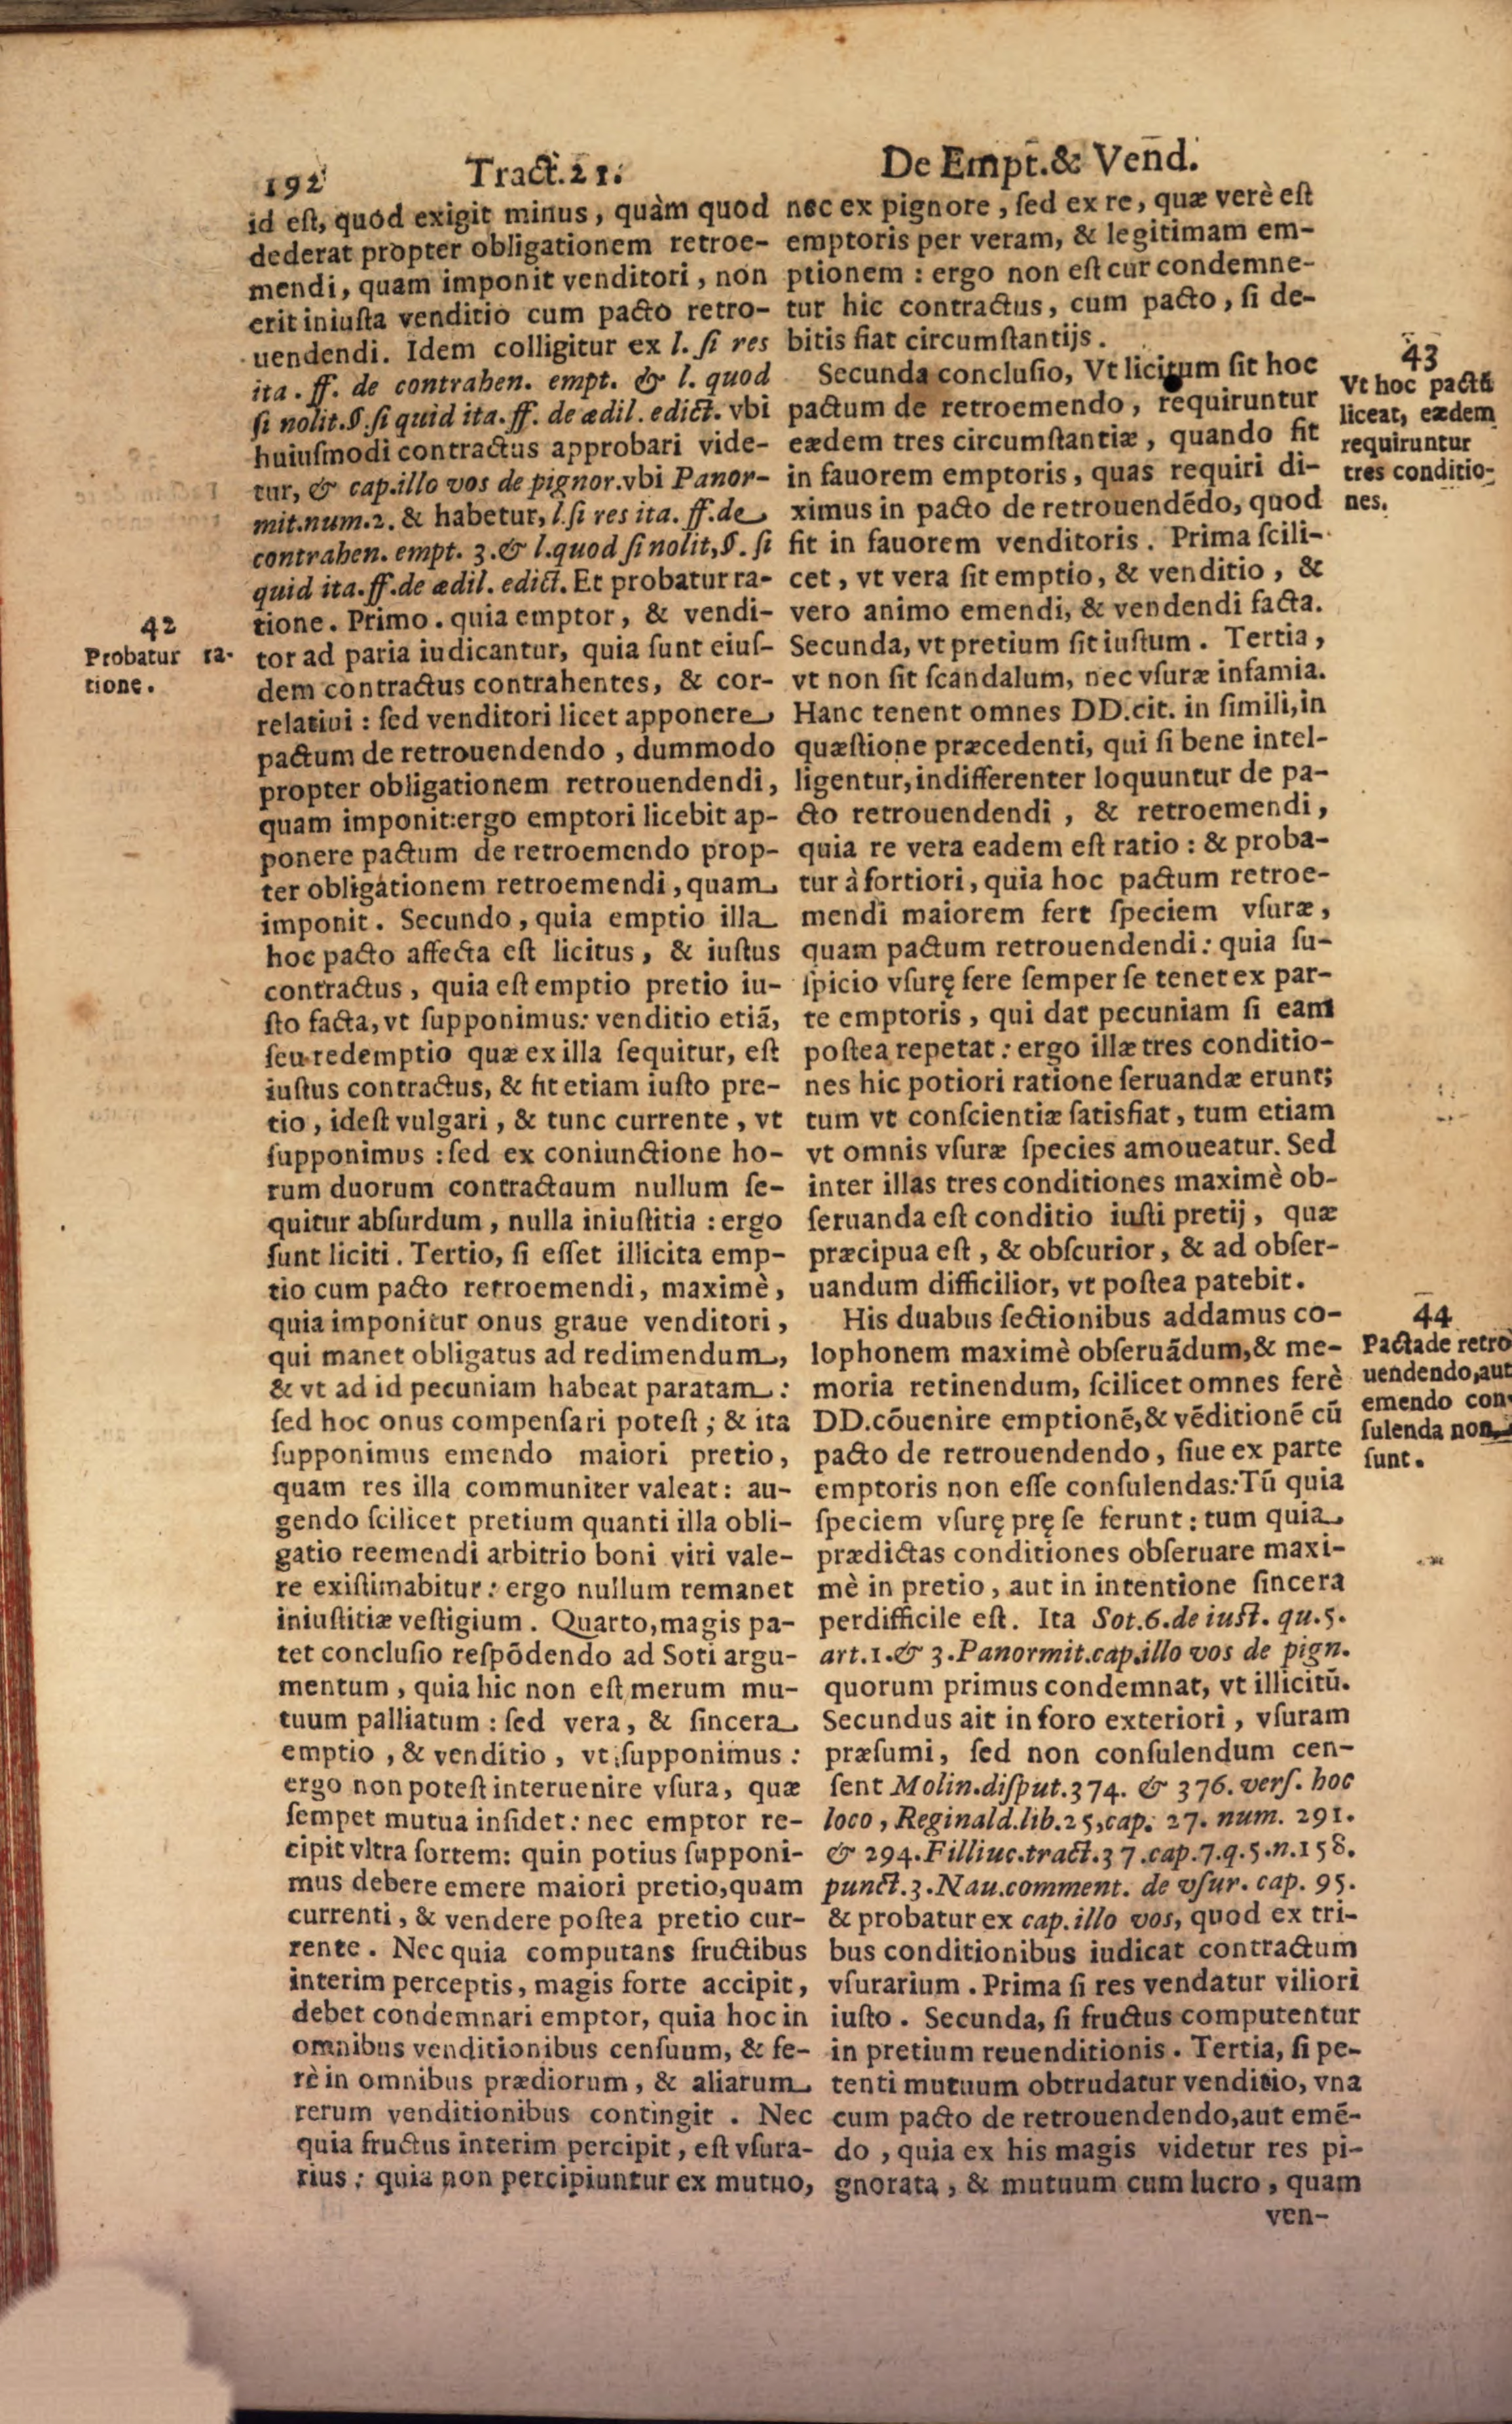 192 Tract.21. De Empt.& Vend.
id eſt, quod exigit minus, quàm quod
dederat propter obligationem retroe-
mendi, quam imponit venditori, non
erit iniuſta venditio cum pacto retro-
uendendi. Idem colligitur ex l. ſi res
ita. ff. de contrahen. empt. & l. quod
ſi nolit.§.ſi quid ita.ff. de ædil. edict. vbi
huiuſmodi contractus approbari vide-
tur, & cap.illo vos de pignor.vbi Panor-
mit.num.2. & habetur, l.ſi res ita. ff.de
contrahen. empt. 3.& l.quod ſi nolit,§. ſi
quid ita.ff.de ædil. edict. Et probatur ra-
tione. Primo. quia emptor, & vendi-
tor ad paria iudicantur, quia ſunt eiuſ-
dem contractus contrahentes, & cor-
relatiui : ſed venditori licet apponere
pactum de retrouendendo, dummodo
propter obligationem retrouendendi,
quam imponit:ergo emptori licebit ap-
ponere pactum de retroemendo prop-
ter obligationem retroemendi, quam
imponit. Secundo, quia emptio illa
hoc pacto affecta eſt licitus, & iuſtus
contractus, quia eſt emptio pretio iu-
ſto facta, vt ſupponimus: venditio etiã,
ſeu redemptio quæ ex illa ſequitur, eſt
iuſtus contractus, & fit etiam iuſto pre-
tio, ideſt vulgari, & tunc currente, vt
ſupponimus : ſed ex coniunctione ho-
rum duorum contractuum nullum ſe-
quitur abſurdum, nulla iniuſtitia : ergo
ſunt liciti. Tertio, ſi eſſet illicita emp-
tio cum pacto retroemendi, maximè,
quia imponitur onus graue venditori,
qui manet obligatus ad redimendum,
& vt ad id pecuniam habeat paratam :
ſed hoc onus compenſari poteſt ; & ita
ſupponimus emendo maiori pretio,
quam res illa communiter valeat: au-
gendo ſcilicet pretium quanti illa obli-
gatio reemendi arbitrio boni viri vale-
re exiſtimabitur : ergo nullum remanet
iniuſtitiæ veſtigium. Quarto, magis pa-
tet concluſio reſpõdendo ad Soti argu-
mentum, quia hic non eſt merum mu-
tuum palliatum : ſed vera, & ſincera
emptio, & venditio, vt ſupponimus :
ergo non poteſt interuenire vſura, quæ
ſempet mutua inſidet : nec emptor re-
cipit vltra ſortem: quin potius ſupponi-
mus debere emere maiori pretio,quam
currenti, & vendere poſtea pretio cur-
rente. Nec quia computans fructibus
interim perceptis, magis forte accipit,
debet condemnari emptor, quia hoc in
omnibus venditionibus cenſuum, & fe-
rè in omnibus prædiorum, & aliarum
rerum venditionibus contingit. Nec
quia fructus interim percipit, eſt vſura-
rius : quia non percipiuntur ex mutuo,
42
Probatur ra-
tione.
nec ex pignore, ſed ex re, quæ verè eſt
emptoris per veram, & legitimam em-
ptionem : ergo non eſt cur condemne-
tur hic contractus, cum pacto, ſi de-
bitis fiat circumſtantijs.
Secunda concluſio, Vt licitum ſit hoc
pactum de retroemendo, requiruntur
eædem tres circumſtantiæ, quando fit
in fauorem emptoris, quas requiri di-
ximus in pacto de retrouendẽdo, quod
fit in fauorem venditoris. Prima ſcili-
cet, vt vera ſit emptio, & venditio, &
vero animo emendi, & vendendi facta.
Secunda, vt pretium ſit iuſtum. Tertia,
vt non ſit ſcandalum, nec vſuræ infamia.
Hanc tenent omnes DD.cit. in ſimili, in
quæſtione præcedenti, qui ſi bene intel-
ligentur, indifferenter loquuntur de pa-
cto retrouendendi, & retroemendi,
quia re vera eadem eſt ratio : & proba-
tur à fortiori, quia hoc pactum retroe-
mendi maiorem fert ſpeciem vſuræ,
quam pactum retrouendendi: quia ſu-
ſpicio vſurę fere ſemper ſe tenet ex par-
te emptoris, qui dat pecuniam ſi eam
poſtea repetat : ergo illæ tres conditio-
nes hic potiori ratione ſeruandæ erunt;
tum vt conſcientiæ ſatisfiat, tum etiam
vt omnis vſuræ ſpecies amoueatur. Sed
inter illas tres conditiones maximè ob-
ſeruanda eſt conditio iuſti pretij, quæ
præcipua eſt, & obſcurior, & ad obſer-
uandum difficilior, vt poſtea patebit.
His duabus ſectionibus addamus co-
lophonem maximè obſeruãdum,& me-
moria retinendum, ſcilicet omnes ferè
DD.cõuenire emptionẽ,& vẽditionẽ cũ
pacto de retrouendendo, ſiue ex parte
emptoris non eſſe conſulendas:Tũ quia
ſpeciem vſurę prę ſe ferunt : tum quia
prædictas conditiones obſeruare maxi-
mè in pretio, aut in intentione ſincera
perdifficile eſt. Ita Sot.6.de iuſt. qu.5.
art.1.& 3.Panormit.cap.illo vos de pign.
quorum primus condemnat, vt illicitũ.
Secundus ait in foro exteriori, vſuram
præſumi, ſed non conſulendum cen-
ſent Molin.diſput.374. & 376. verſ. hoc
loco, Reginald.lib.25,cap. 27. num. 291.
& 294.Filliuc.tract.37.cap.7.q.5.n.158.
punct.3.Nau.comment. de vſur. cap. 95.
& probatur ex cap.illo vos, quod ex tri-
bus conditionibus iudicat contractum
vſurarium. Prima ſi res vendatur viliori
iuſto. Secunda, ſi fructus computentur
in pretium reuenditionis. Tertia, ſi pe-
tenti mutuum obtrudatur venditio, vna
cum pacto de retrouendendo,aut emẽ-
do, quia ex his magis videtur res pi-
gnorata, & mutuum cum lucro, quam
ven-
43
Vt hoc pactũ
liceat, eædem
requiruntur
tres conditio-
nes.
44
Pacta de retro
uendendo,aut
emendo con-
ſulenda non
ſunt.